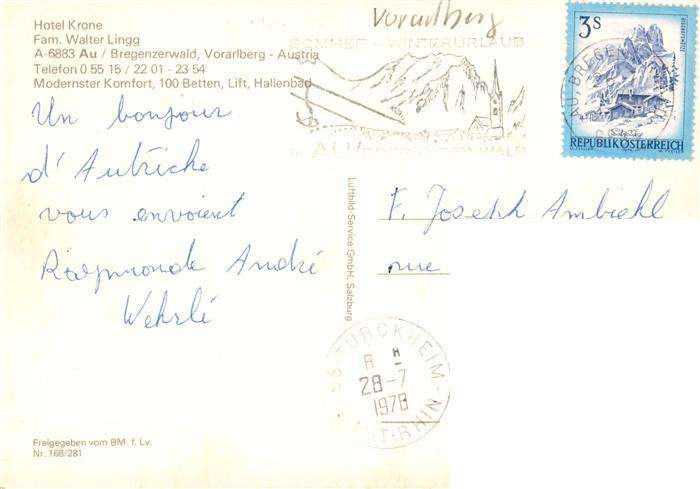 Hotel Krone
Fam. Walter Lingg
A-6883 Au / Bregenzerwald, Vorarlberg - Austria
Telefon 0 55 15 / 22 01 - 23 54
Modernster Komfort, 100 Betten, Lift, Hallenbad
Vorarlberg
SOMMER - WINTERURLAUB
in AU/BREGENZER WALD
3 S
REPUBLIK ÖSTERREICH
AU BREGENZ
Un bonjour
d'Autriche
vous envoient
Raymonde André
Wehrlé
Luftbild Service GmbH, Salzburg
F. Joseph Ambiehl
rue
68 TURCKHEIM - HT-RHIN
8 H
28-7
1978
Freigegeben vom BM. f. Lv.
Nr. 168/281